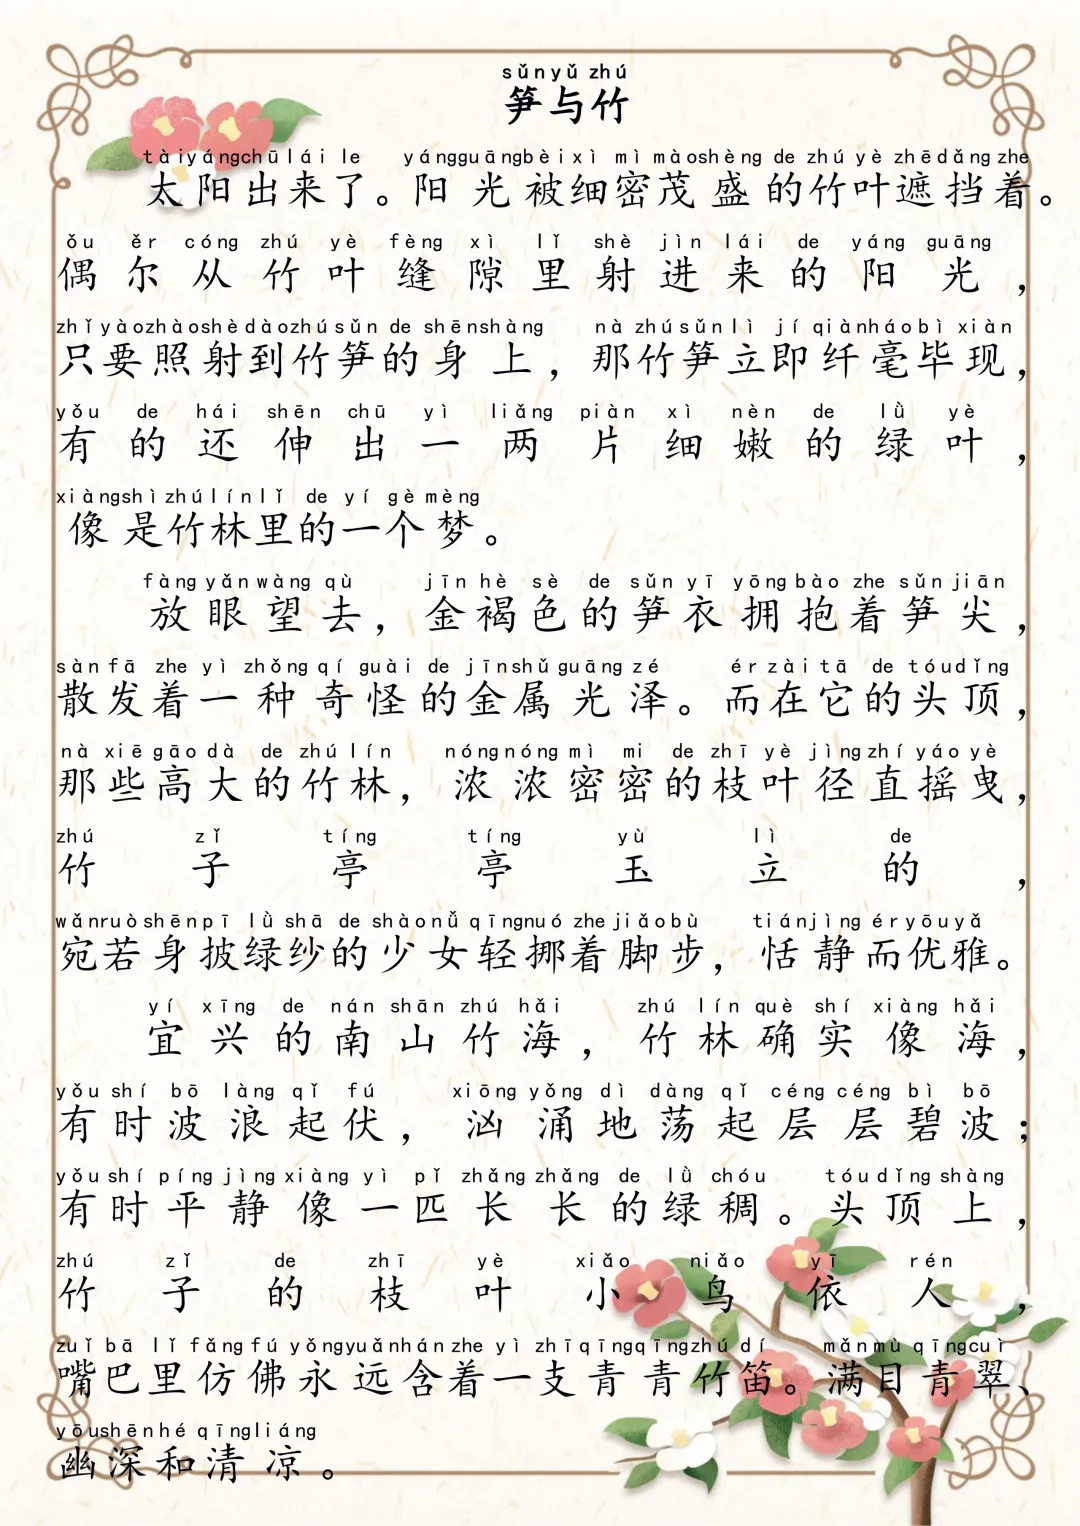 sǔn yǔ zhú
笋与竹
tài yáng chū lái le yáng guāng bèi xì mì mào shèng de zhú yè zhē dǎng zhe
太阳出来了。阳光被细密茂盛的竹叶遮挡着。
ǒu ěr cóng zhú yè fèng xì lǐ shè jìn lái de yáng guāng
偶尔从竹叶缝隙里射进来的阳光，
zhǐ yào zhào shè dào zhú sǔn de shēn shàng nà zhú sǔn lì jí qiàn háo bì xiàn
只要照射到竹笋的身上，那竹笋立即纤毫毕现，
yǒu de hái shēn chū yì liǎng piàn xì nèn de lǜ yè
有的还伸出一两片细嫩的绿叶，
xiàng shì zhú lín lǐ de yí gè mèng
像是竹林里的一个梦。
fàng yǎn wàng qù jīn hè sè de sǔn yī yōng bào zhe sǔn jiān
放眼望去，金褐色的笋衣拥抱着笋尖，
sàn fā zhe yì zhǒng qí guài de jīn shǔ guāng zé ér zài tā de tóu dǐng
散发着一种奇怪的金属光泽。而在它的头顶，
nà xiē gāo dà de zhú lín nóng nóng mì mi de zhī yè jìng zhí yáo yè
那些高大的竹林，浓浓密密的枝叶径直摇曳，
zhú zǐ tíng tíng yù lì de
竹子亭亭玉立的，
wǎn ruò shēn pī lǜ shā de shào nǚ qīng nuó zhe jiǎo bù tián jìng ér yōu yǎ
宛若身披绿纱的少女轻挪着脚步，恬静而优雅。
yí xīng de nán shān zhú hǎi zhú lín què shí xiàng hǎi
宜兴的南山竹海，竹林确实像海，
yǒu shí bō làng qǐ fú xiōng yǒng dì dàng qǐ céng céng bì bō
有时波浪起伏，汹涌地荡起层层碧波；
yǒu shí píng jìng xiàng yì pǐ zhǎng zhǎng de lǜ chóu tóu dǐng shàng
有时平静像一匹长长的绿稠。头顶上，
zhú zǐ de zhī yè xiǎo niǎo yī rén
竹子的枝叶小鸟依人，
zuǐ bā lǐ fǎng fú yǒng yuǎn hán zhe yì zhī qīng qīng zhú dí mǎn mù qīng cuì
嘴巴里仿佛永远含着一支青青竹笛。满目青翠、
yōu shēn hé qīng liáng
幽深和清凉。